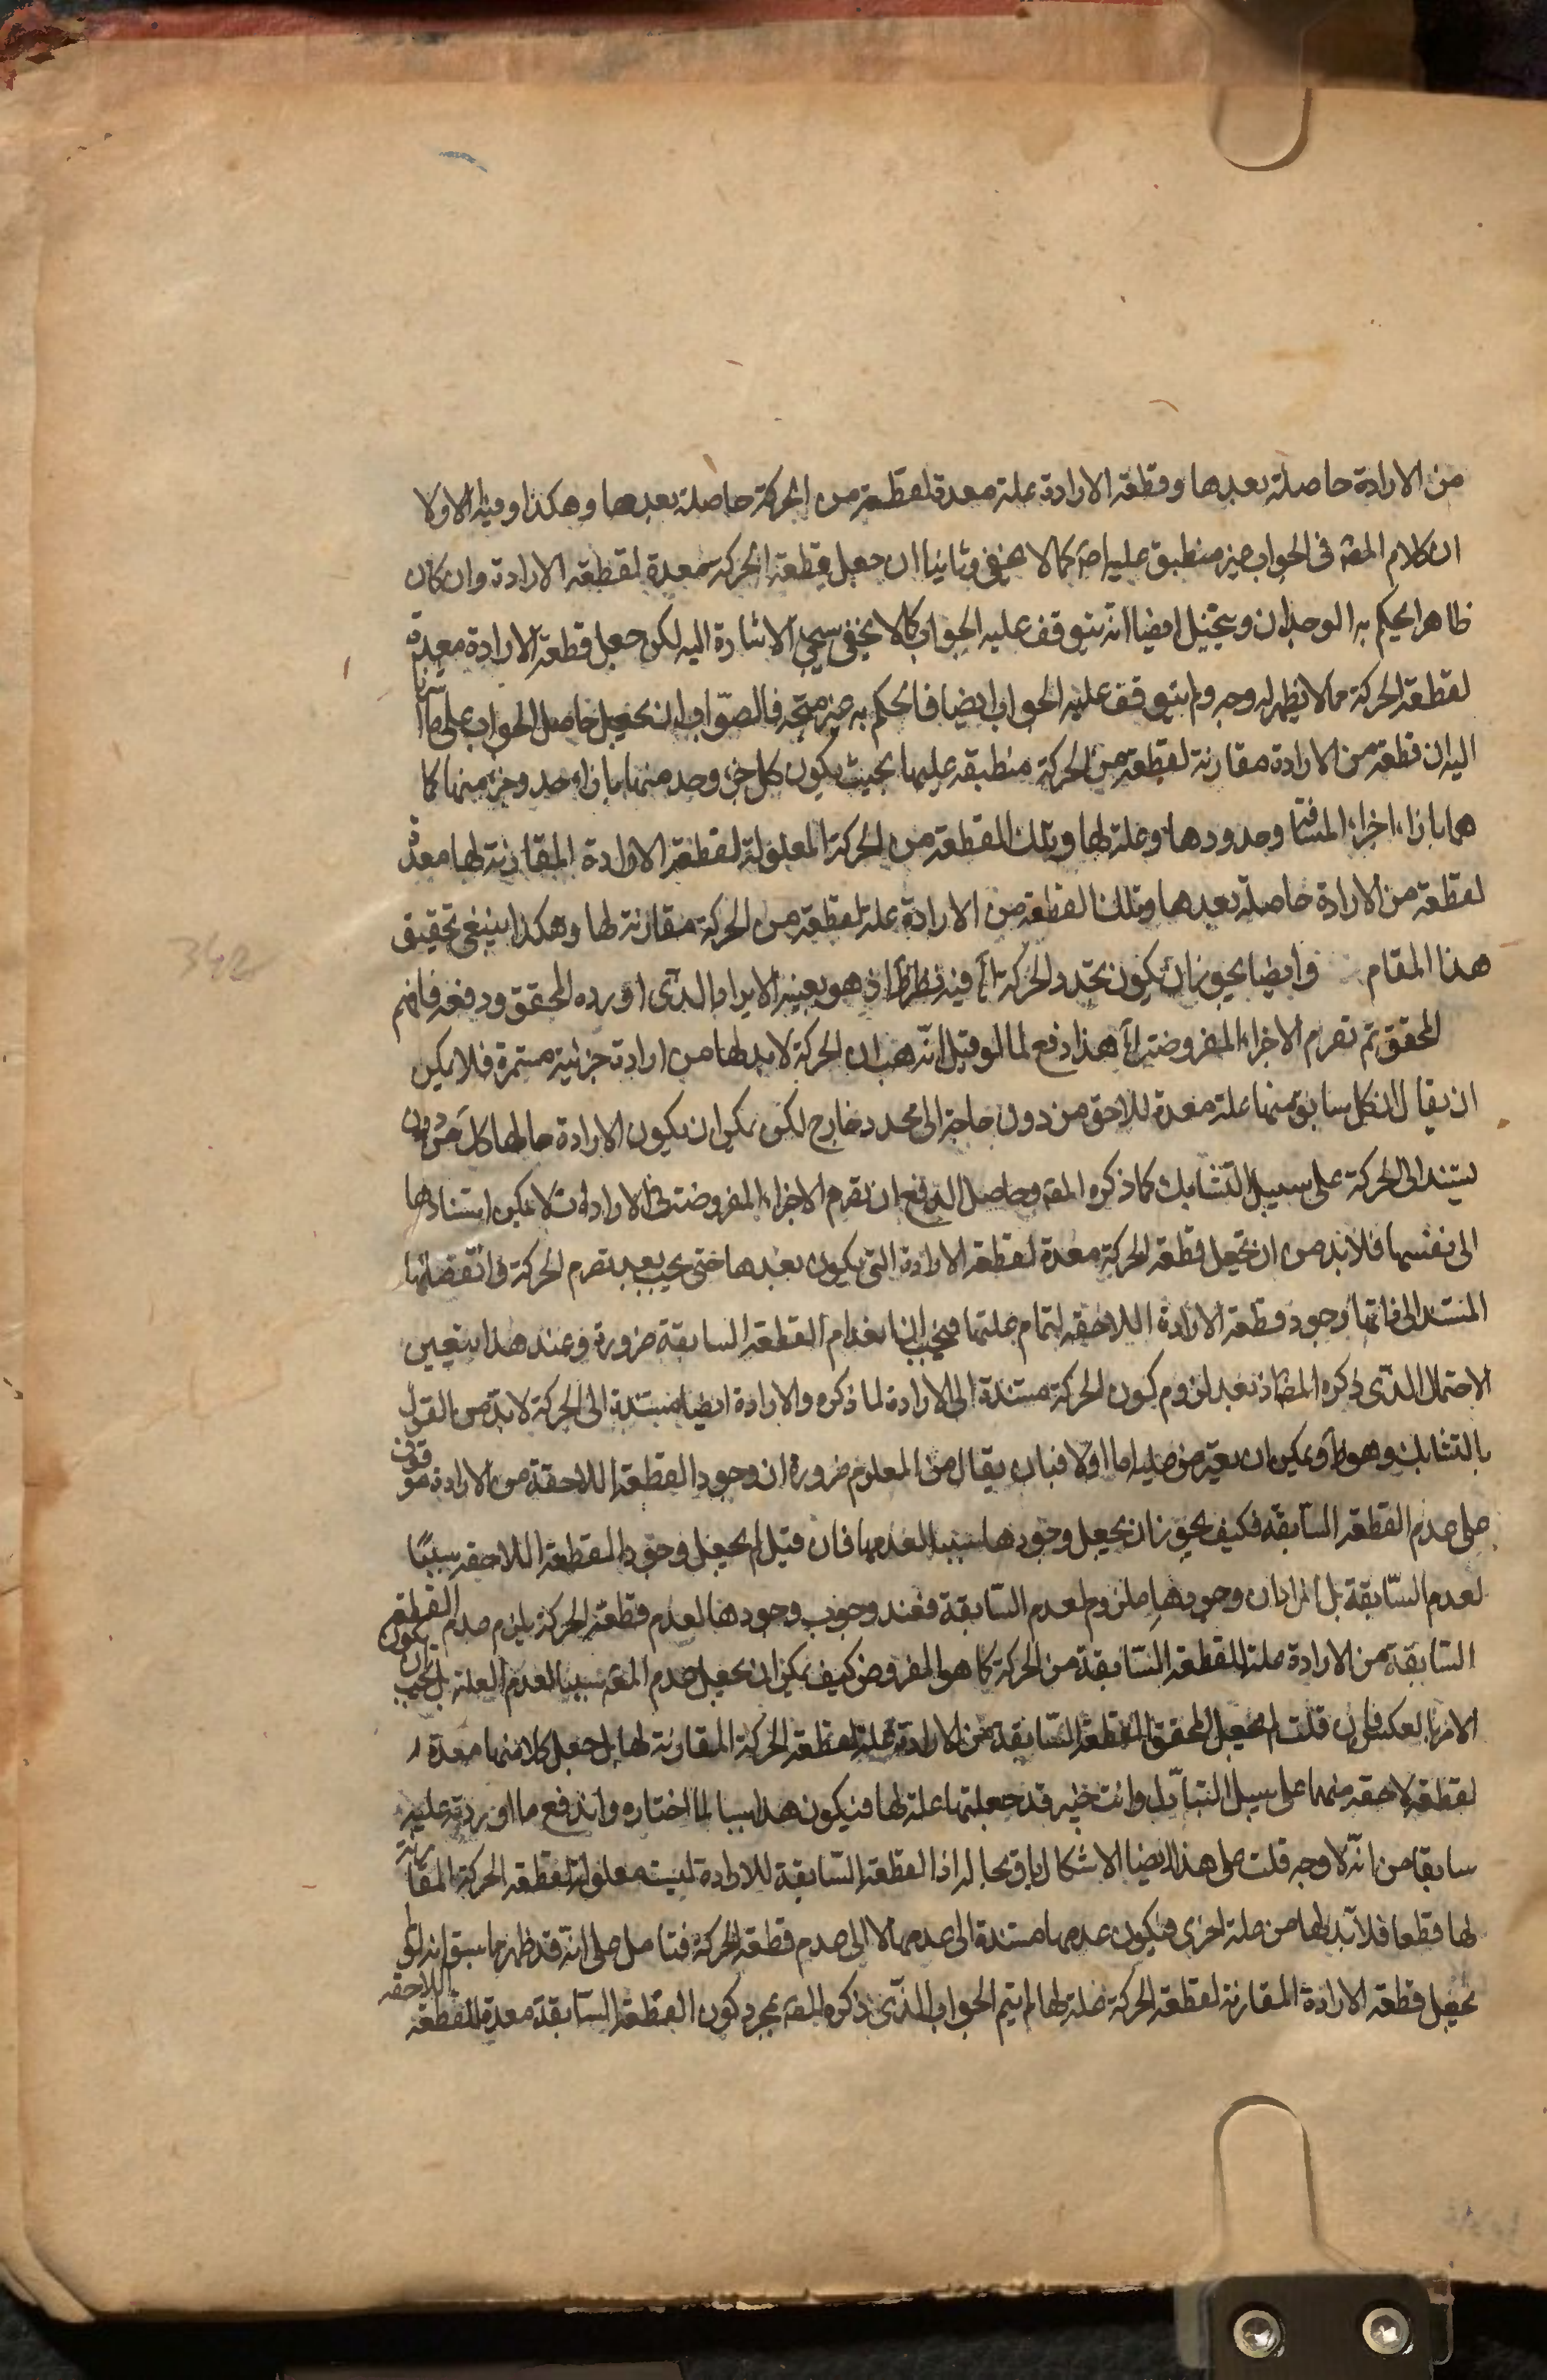 من الارادة حاصلة بعدها وقطعة الارادة علة معدة لقطعة من الحركة حاصلة بعدها وهكذا وفيه اولا
ان كلام المص في الجواب غير منطبق عليه اصلا كما لا يخفى وثانيا ان جعل قطعة الحركة معدة لقطعة الارادة وان كان
ظاهرا يحكم به الوجدان ويتخيل ايضا انه يتوقف عليه الجواب كما لا يخفى سيجئ الاشارة اليه لكن جعل قطعة الارادة معدة
لقطعة الحركة مما لا يظهر له وجه ولم يتوقف عليه الجواب ايضا فالحكم به غير متجه فالصواب ان يجعل حاصل الجواب على ما
اليه ان قطعة من الارادة مقارنة لقطعة من الحركة منطبقة عليها بحيث يكون كل جزء وحد منها بازاء حد وجزء منها كما
هما بازاء اجزاء المسافة وحدودها وعلة لها وتلك القطعة من الحركة المعلولة لقطعة الارادة المقارنة لها معدة
لقطعة من الارادة حاصلة بعدها وتلك القطعة من الارادة علة لقطعة من الحركة مقارنة لها وهكذا ينبغي تحقيق
هذا المقام وايضا يجوز ان يكون تجدد الحركة آه فيه نظر اذ هو بعينه الايراد الذي اورده المحقق ودفعه فافهم
المحقق ثم تصرم الاجزاء المفروضة آه هذا دفع لما لو قيل انه هب ان الحركة لابد لها من ارادة جزئية مستمرة فلا يمكن
ان يقال ان كل سابق منها علة معدة للاحق من دون حاجة الى مجدد خارج لكن يمكن ان يكون الارادة حالها كل جزء بدون
يستند الى الحركة على سبيل التشابك كما ذكره المص وحاصل الدفع ان تصرم الاجزاء المفروضة في الارادات لا يمكن استنادها
الى نفسها فلابد من ان يجعل قطعة الحركة معدة لقطعة الارادة التي يكون بعدها حتى يجب بعد تصرم الحركة وانقضائها
المستند الى ذاتها وجود قطعة الارادة اللاحقة لتمام علتها فيجب انعدام القطعة السابقة ضرورة وعند هذا يتعين
الاحتمال الذي ذكره المص اذ بعد لزوم كون الحركة مستندة الى الارادة لما ذكره والارادة ايضا مستندة الى الحركة لابد من القول
بالتشابك وهو ظ ويمكن ان يعترض عليه اما اولا فبان يقال من المعلوم ضرورة ان وجود القطعة اللاحقة من الارادة موقوف
على عدم القطعة السابقة فكيف يجوز ان يجعل وجودها سببا لعدمها فان قيل لم يجعل وجود القطعة اللاحقة سببا
لعدم السابقة بل المراد ان وجودها ملزوم لعدم السابقة فعند وجوب وجودها لعدم قطعة الحركة يلزم عدم القطعة
السابقة من الارادة علة للقطعة السابقة من الحركة كما هو المفروض كيف يمكن ان يجعل عدم المعلول سببا لعدم العلة بل يجب ان يكون
الامر بالعكس فان قلت لم يجعل المحقق القطعة السابقة من الارادة علة لقطعة الحركة المقارنة لها بل جعل كلا منهما معدة
لقطعة لاحقة منهما على سبيل التبادل وانت خبير قد جعلتها علة لها فيكون هذا سببا لما اختاره واندفع ما اوردته عليه
سابقا من انه لا وجه قلت على هذا ايضا الاشكال باق بحاله اذ القطعة السابقة للارادة ليست معلولة لقطعة الحركة المقارنة
لها قطعا فلابد لها من علة اخرى فيكون عدمها مستندة الى عدمها لا الى عدم قطعة الحركة فتامل على انه قد ظهر مما سبق انه لو لم
يجعل قطعة الارادة المقارنة لقطعة الحركة علة لها لم يتم الجواب الذي ذكره المص بمجرد كون القطعة السابقة معدة للقطعة اللاحقة